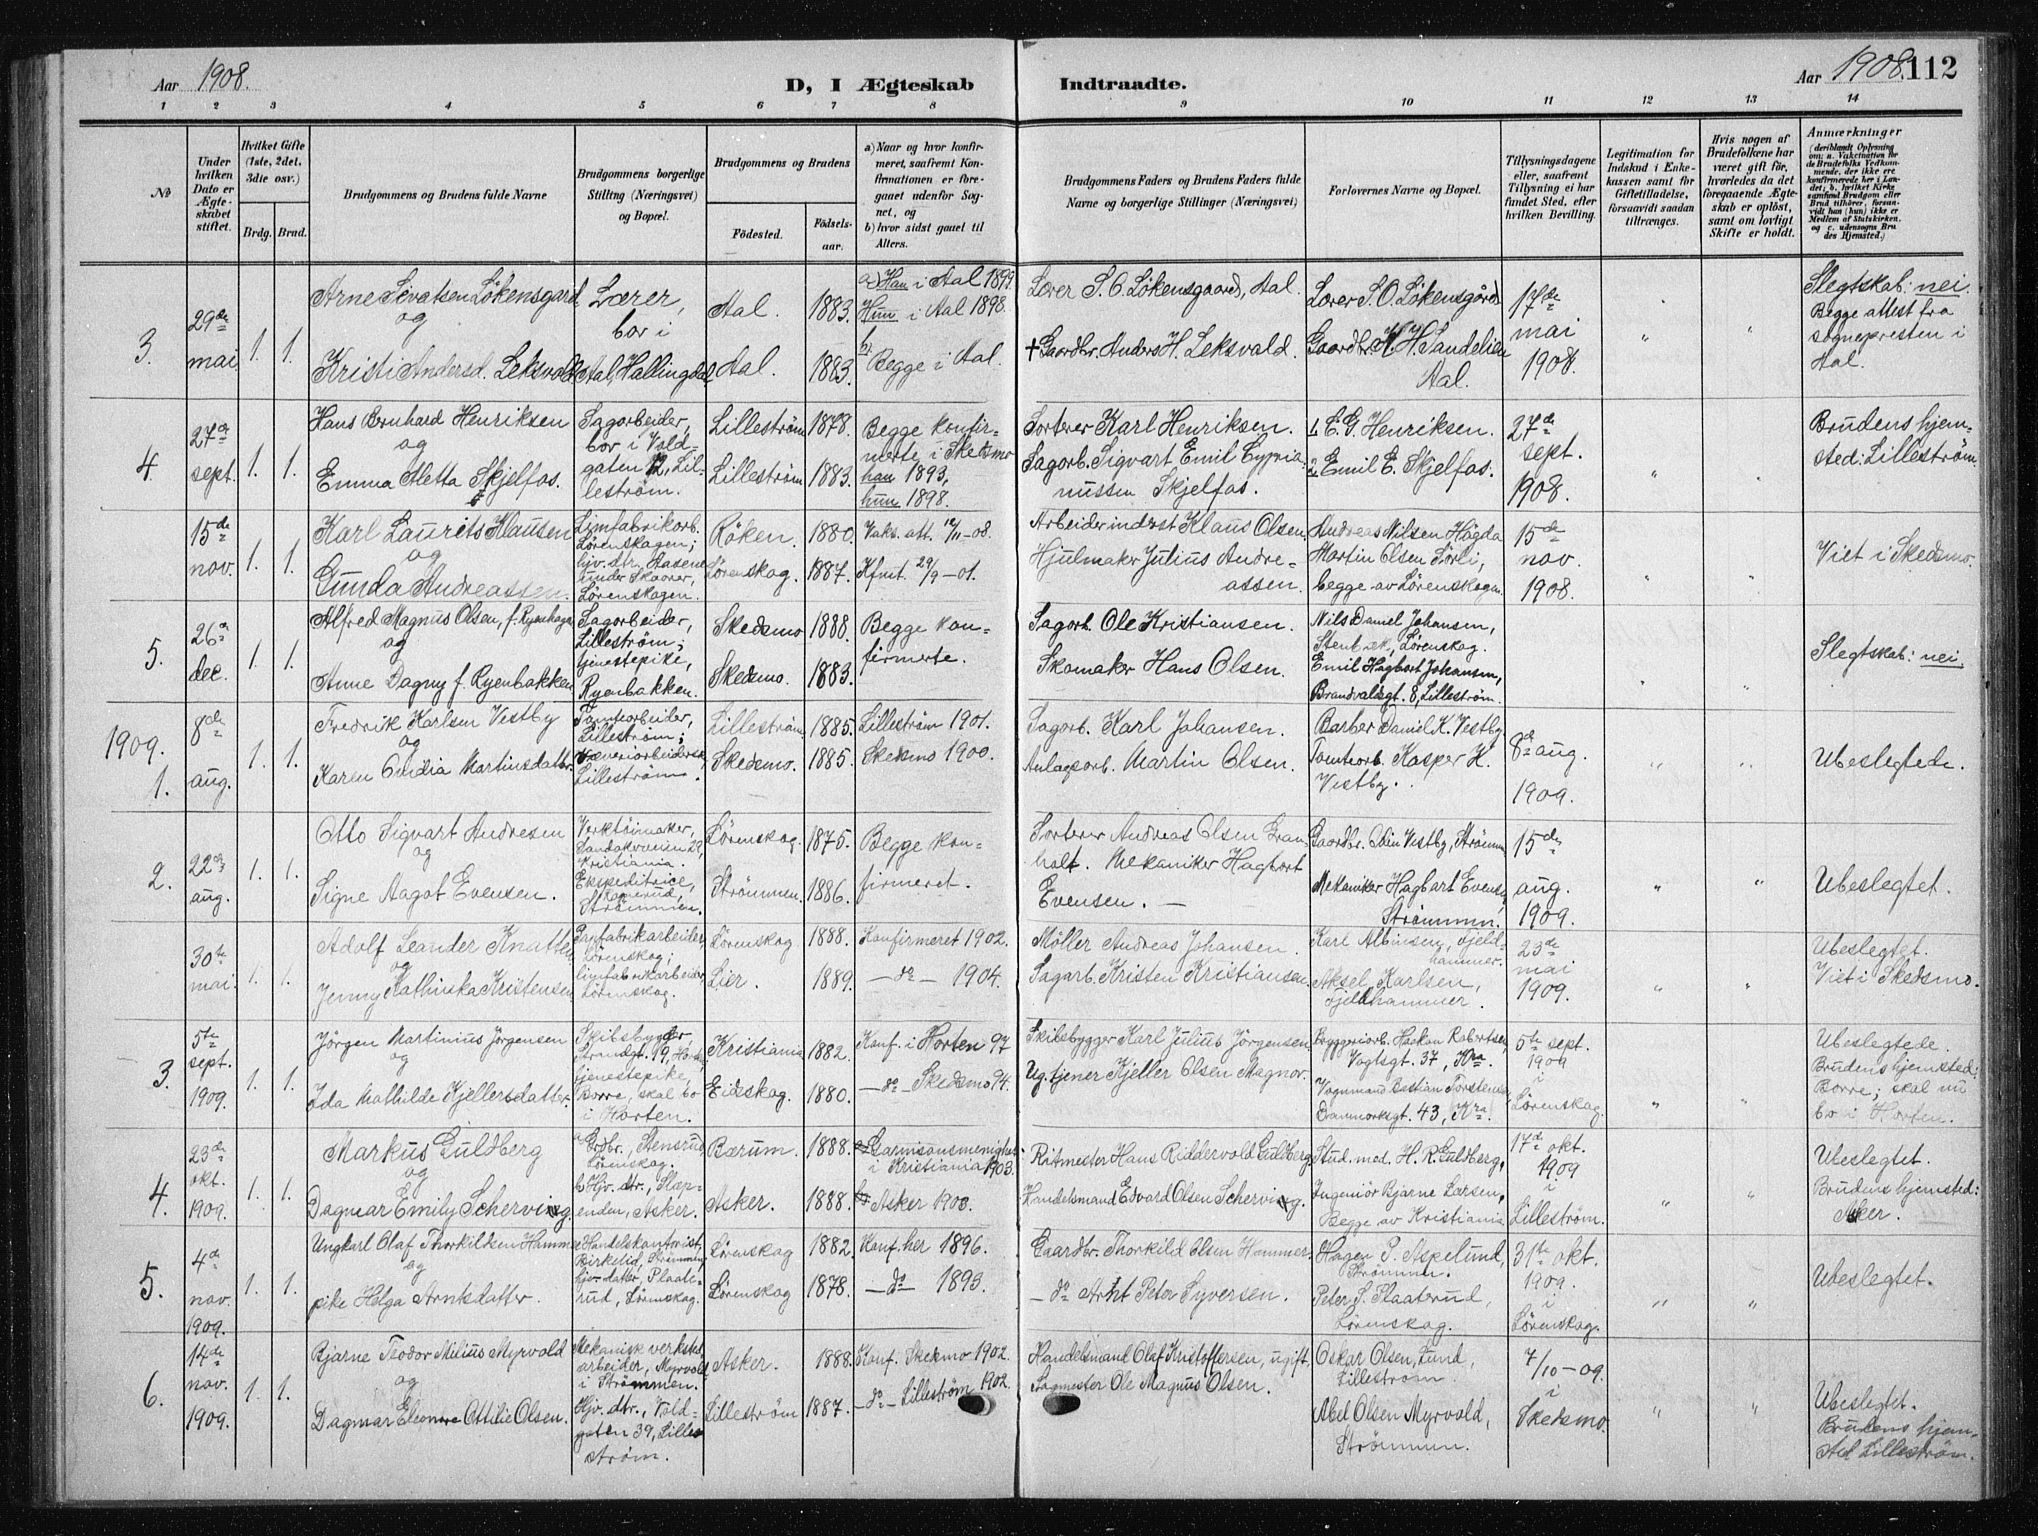 Aar 1908.
D, I Ægteskab Indtraadte.
Aar 1908. 112
1 2 3 4 5 6 7 8 9 10 11 12 13 14
No
Under hvilken Dato er Ægteskabet stiftet.
Hvilket Gifte (1ste, 2det, 3die osv.)
Brdg. Brud.
Brudgommens og Brudens fulde Navne
Brudgommens borgerlige Stilling (Næringsvei) og Bopæl.
Brudgommens og Brudens
Fødested. Fødselsaar.
a) Naar og hvor konfirmeret, saafremt Konfirmationen er foregaaet udenfor Sognet, og
b) hvor sidst gaaet til Alters.
Brudgommens Faders og Brudens Faders fulde Navne og borgerlige Stillinger (Næringsvei)
Forlovernes Navne og Bopæl.
Tillysningsdagene eller, saafremt Tillysning ei har fundet Sted, efter hvilken Bevilling.
Legitimation for Indskud i Enkekassen samt for Giftetilladelse, forsaavidt saadan tiltrænges.
Hvis nogen af Brudefolkene har været gift før, hvorledes da det foregaaende Ægteskab er opløst, samt om lovligt Skifte er holdt.
Anmærkninger
(deriblandt Oplysning om: a. Vakcination for de Brudefolks Vedkommende, der ikke ere konfirmerede her i Landet; b. hvilket Kirkesamfund Brudgom eller Brud tilhører, forsaavidt han (hun) ikke er Medlem af Statskirken, og c. udensogns Brudes Hjemsted.)
3. 29de mai 1. 1.
Arne Sivatsen Lökensgard
og
Kristi Andersd. Leksvold
Lærer,
bor i
Aal, Hallingdal
Aal. 1883.
Aal. 1883.
a) Han i Aal 1899.
Hun i Aal 1898.
b) Begge i Aal.
Lærer S. O. Lökensgaard, Aal.
+ Gaardbr. Anders H. Leksvald.
Lærer S. O. Lökensgård
Gaardbr. H. H. Sandelien
Aal.
17de
mai
1908.
Slegtskab: nei.
Begge attest fra
sognepresten i
Aal.
4. 27de sept. 1. 1.
Hans Bernhard Henriksen
og
Emma Aletta Skjelfos.
Sagarbeider,
bor i Vold-
gaten 12, Lil-
leström.
Lilleström 1878.
Lilleström 1883.
Begge konfir-
merte i Skedsmo
han 1893,
hun 1898.
Sorterer Karl Henriksen.
Sagarb. Sigvart Emil Cypria-
nussen Skjelfos.
1. E. G. Henriksen.
2. Emil E. Skjelfos.
27de
sept.
1908.
Brudens hjem-
sted: Lilleström.
15de nov. 1. 1.
Karl Laurits Klausen
og
Gunda Andreassen.
Limfabrikarb.
Lørenskogen;
hjv. dtr. Aasene
under Skaarer,
Lørenskogen.
Röken. 1880.
Lørenskog. 1887.
Vaks. att. 12/11-08.
Kfmt. 29/9-01.
Arbeider inderst Klaus Olsen.
Hjulmaker Julius Andre-
assen.
Andreas Nilsen Høgda
Martin Olsen Sörli,
begge av Lørenskogen.
15de
nov.
1908.
Viet i Skedsmo.
5. 26de dec. 1. 1.
Alfred Magnus Olsen, f. Ryenhagen
og
Anne Dagny f. Ryenbakken
Sagarbeider,
Lilleström;
tjenestepike,
Ryenbakken.
Skedsmo 1888.
Skedsmo. 1883.
Begge kon-
firmerte.
Sagarb. Ole Kristiansen.
Skomaker Hans Olsen.
Nils Daniel Johansen,
Lørenskog.
Emil Hagbart Johansen,
Brandvaldsgt. 8, Lilleström.
Slegtskab: nei.
1909.
1. 8de aug. 1. 1.
Fredrik Karlsen Vestby
og
Karen Martinsdatter.
Tomtearbeider,
Lilleström;
Væveriarbeiderske
Lilleström.
Lilleström 1885.
Skedsmo. 1885.
Lilleström 1901.
Skedsmo 1900.
Sagarb. Karl Johansen.
Anlagsarb. Martin Olsen.
Barber Daniel K. Vestby
Tomtearb. Kasper K.
Vestby.
8de aug.
1909.
Ubeslegtede.
2. 22de aug. 1. 1.
Otto Sigvart Andresen
og
Signe Aagot Evensen.
Verktöimaker,
Sandakerveien 29,
Kristiania.
Ekspeditrice,
Strømmen.
Lørenskog. 1875.
Strømmen. 1886.
Begge kon-
firmeret.
Sorterer Andreas Olsen Gran-
holt. Mekaniker Hagbart
Evensen. —
Gaardbr. Odin Vestby, Strømmen
Mekaniker Hagbart Evensen,
Strømmen.
15de
aug.
1909.
Ubeslegtet.
30te mai. 1. 1.
Adolf Leander Knatten
og
Jenny Kathinka Kristensen
Lørenskog;
limfabrikarbeider,
Lørenskog.
Lørenskog 1888.
Lier. 1889.
Konfirmeret 1902.
— do — 1904.
Møller Andreas Johansen.
Sagarb. Kristen Kristiansen.
Karl Albinsen, Fjeld-
hammer.
Aksel Karlsen,
Fjeldhammer.
23de
mai
1909.
Ubeslegtet.
Viet i Skedsmo.
3. 5te sept. 1909. 1. 1.
Jörgen Martinius Jörgensen
og
Ida Mathilde Kjellersdatter.
Skibsbygger,
Strandgt. 19, Horten
tjenestepike,
Borre, skal bo
i Horten.
Kristiania 1882.
Eidskog. 1880.
Konf. i Horten 97
— do — Skedsmo 94.
Skibsbygger Karl Julius Jörgensen.
Ug. tjener Kjeller Olsen Magnor.
Bryggeriarb. Haakon Robertsen,
Vogtsgt. 37, Kra.
Vognmand Bastian Torstensen
Danmarksgt. 43, Kra.
5te sept.
1909
i
Lørenskog.
Ubeslegtede.
Brudens hjemsted:
Borre; skal nu
bo i Horten.
4. 23de okt. 1909. 1. 1.
Markus Guldberg
og
Dagmar Emily Scherving.
a Grdbr., Stensrud,
Lørenskog.
b Hjv. dtr., Slæp-
enden, Asker.
Bærum. 1888.
Asker. 1888.
a) Garnisonsmenighet
i Kristiania 1903.
b) Asker 1903.
Ritmester Hans Riddervold Guldberg
Handelsmand Edvard Olsen Scherving.
Stud. med. H. R. Guldberg,
Ingeniør Bjarne Larsen,
Begge av Kristiania
17de okt.
1909
i
Lilleström.
Ubeslegtet.
Brudens hjemsted:
Asker.
5. 4de nov. 1909. 1. 1.
Ungkarl Olaf Thorkildsen Hammer
og
pike Helga Arntsdatter.
Handelskontorist
Birkelid, Strømmen
hjv. datter, Plaate-
rud, Lørenskog.
Lørenskog 1882.
Lørenskog 1878.
Konf. her 1896.
— do — 1893.
Gaardbr. Thorkild Olsen Hammer.
— do Arnt Peter Syversen.
Hagen P. Aspelund,
Strømmen.
Peter S. Plaaterud,
Lørenskog.
31te okt.
1909.
i
Lørenskog.
Ubeslegtet.
6. 14de nov. 1909. 1. 1.
Bjarne Teodor Milius Myrvold
og
Dagmar Eleonore Ottilie Olsen.
Mekanisk verksted-
arbeider, Myrvold
i Strømmen.
Hjv. dtr., Vold-
gaten 39, Lille-
strøm.
Asker. 1888.
Lilleström 1887.
Konf. Skedsmo 1902.
— do — Lilleström 1902.
Handelsmand Olaf Kristoffersen, ugift.
Sagmester Ole Magnus Olsen.
Oskar Olsen, Lund,
Lilleström.
Abel Olsen Myrvold,
Strømmen.
7/10-09.
i
Skedsmo
Ubeslegtet.
Brudens hjem-
sted Lilleström.